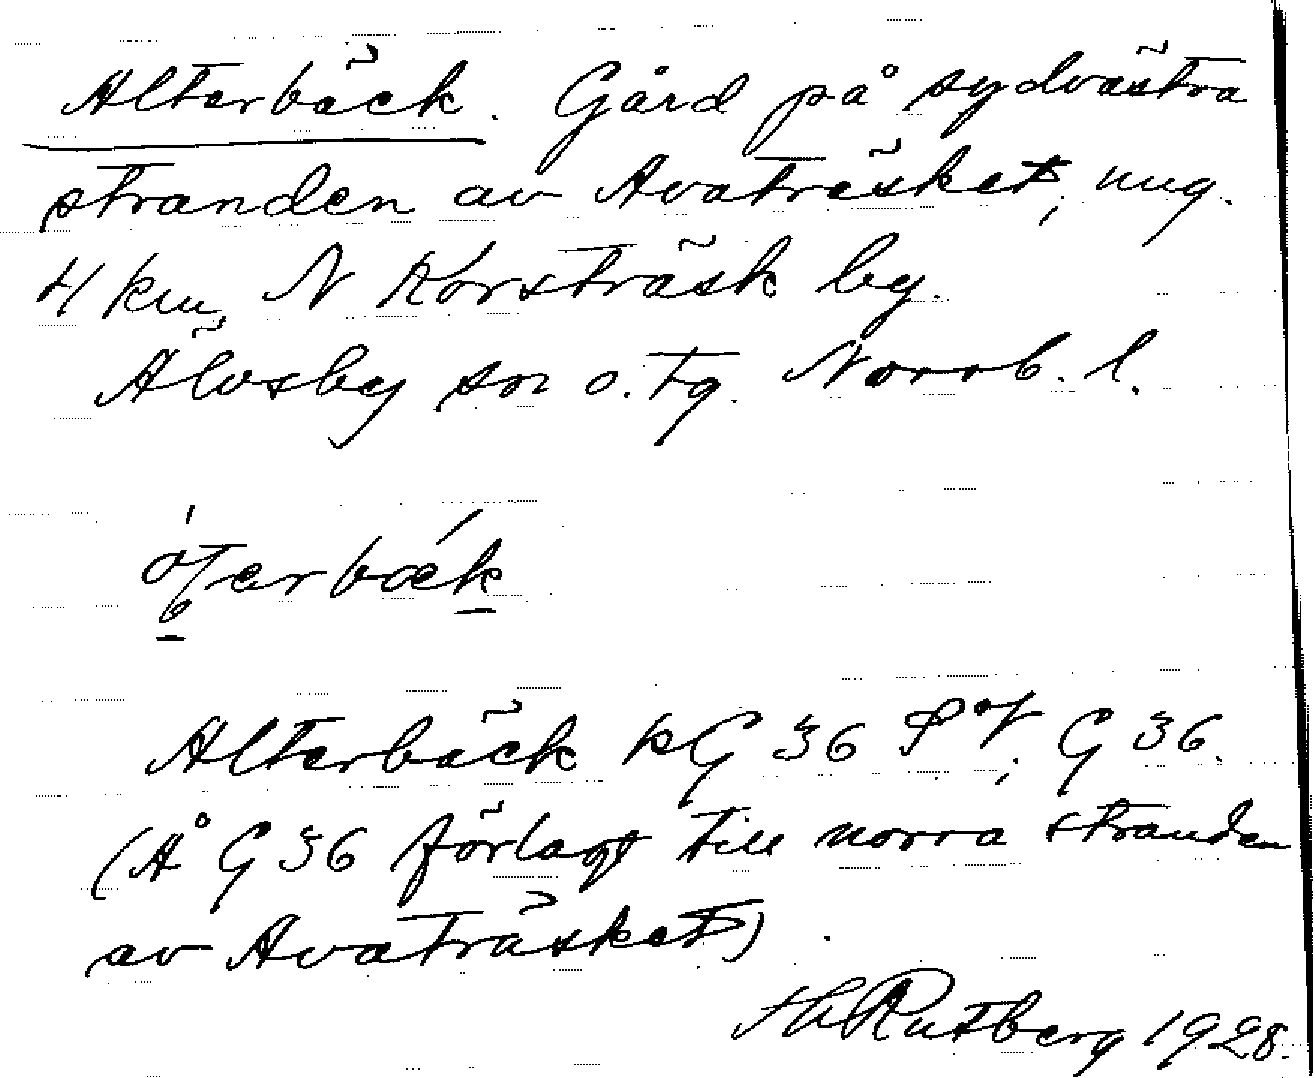 Alterbäck. Gård på sydvästra
stranden av Avaträsket, ung.
4 km N Korsträsk by.
Älvsby sn o. tg. Norrb. l.
Alterbäck på G 36 G 36.
(Å G 36 förlagt till norra stranden
av Avaträsket)
Rutberg 1928.